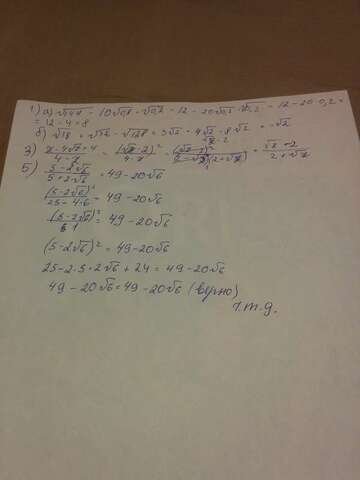 1) а) √144 - 10√0,8 · √0,2 = 12 - 20√0,2 · 0,2 = 12 - 20·0,2 =
= 12 - 4 = 8
б) √18 = √32 - √128 = 3√2 + 4√2 - 8√2 = -√2
3) x - 4√x + 4 / 4 - x = (√x - 2)² / 4 - x = (√x - 2)² / (2 - √x)(2 + √x) = √x - 2 / 2 + √x
5) 5 - 2√6 / 5 + 2√6 = 49 - 20√6
(5 - 2√6)² / 25 - 4·6 = 49 - 20√6
(5 - 2√6)² / 1 = 49 - 20√6
(5 - 2√6)² = 49 - 20√6
25 - 2·5·2√6 + 24 = 49 - 20√6
49 - 20√6 = 49 - 20√6 (верно)
ч.т.д.